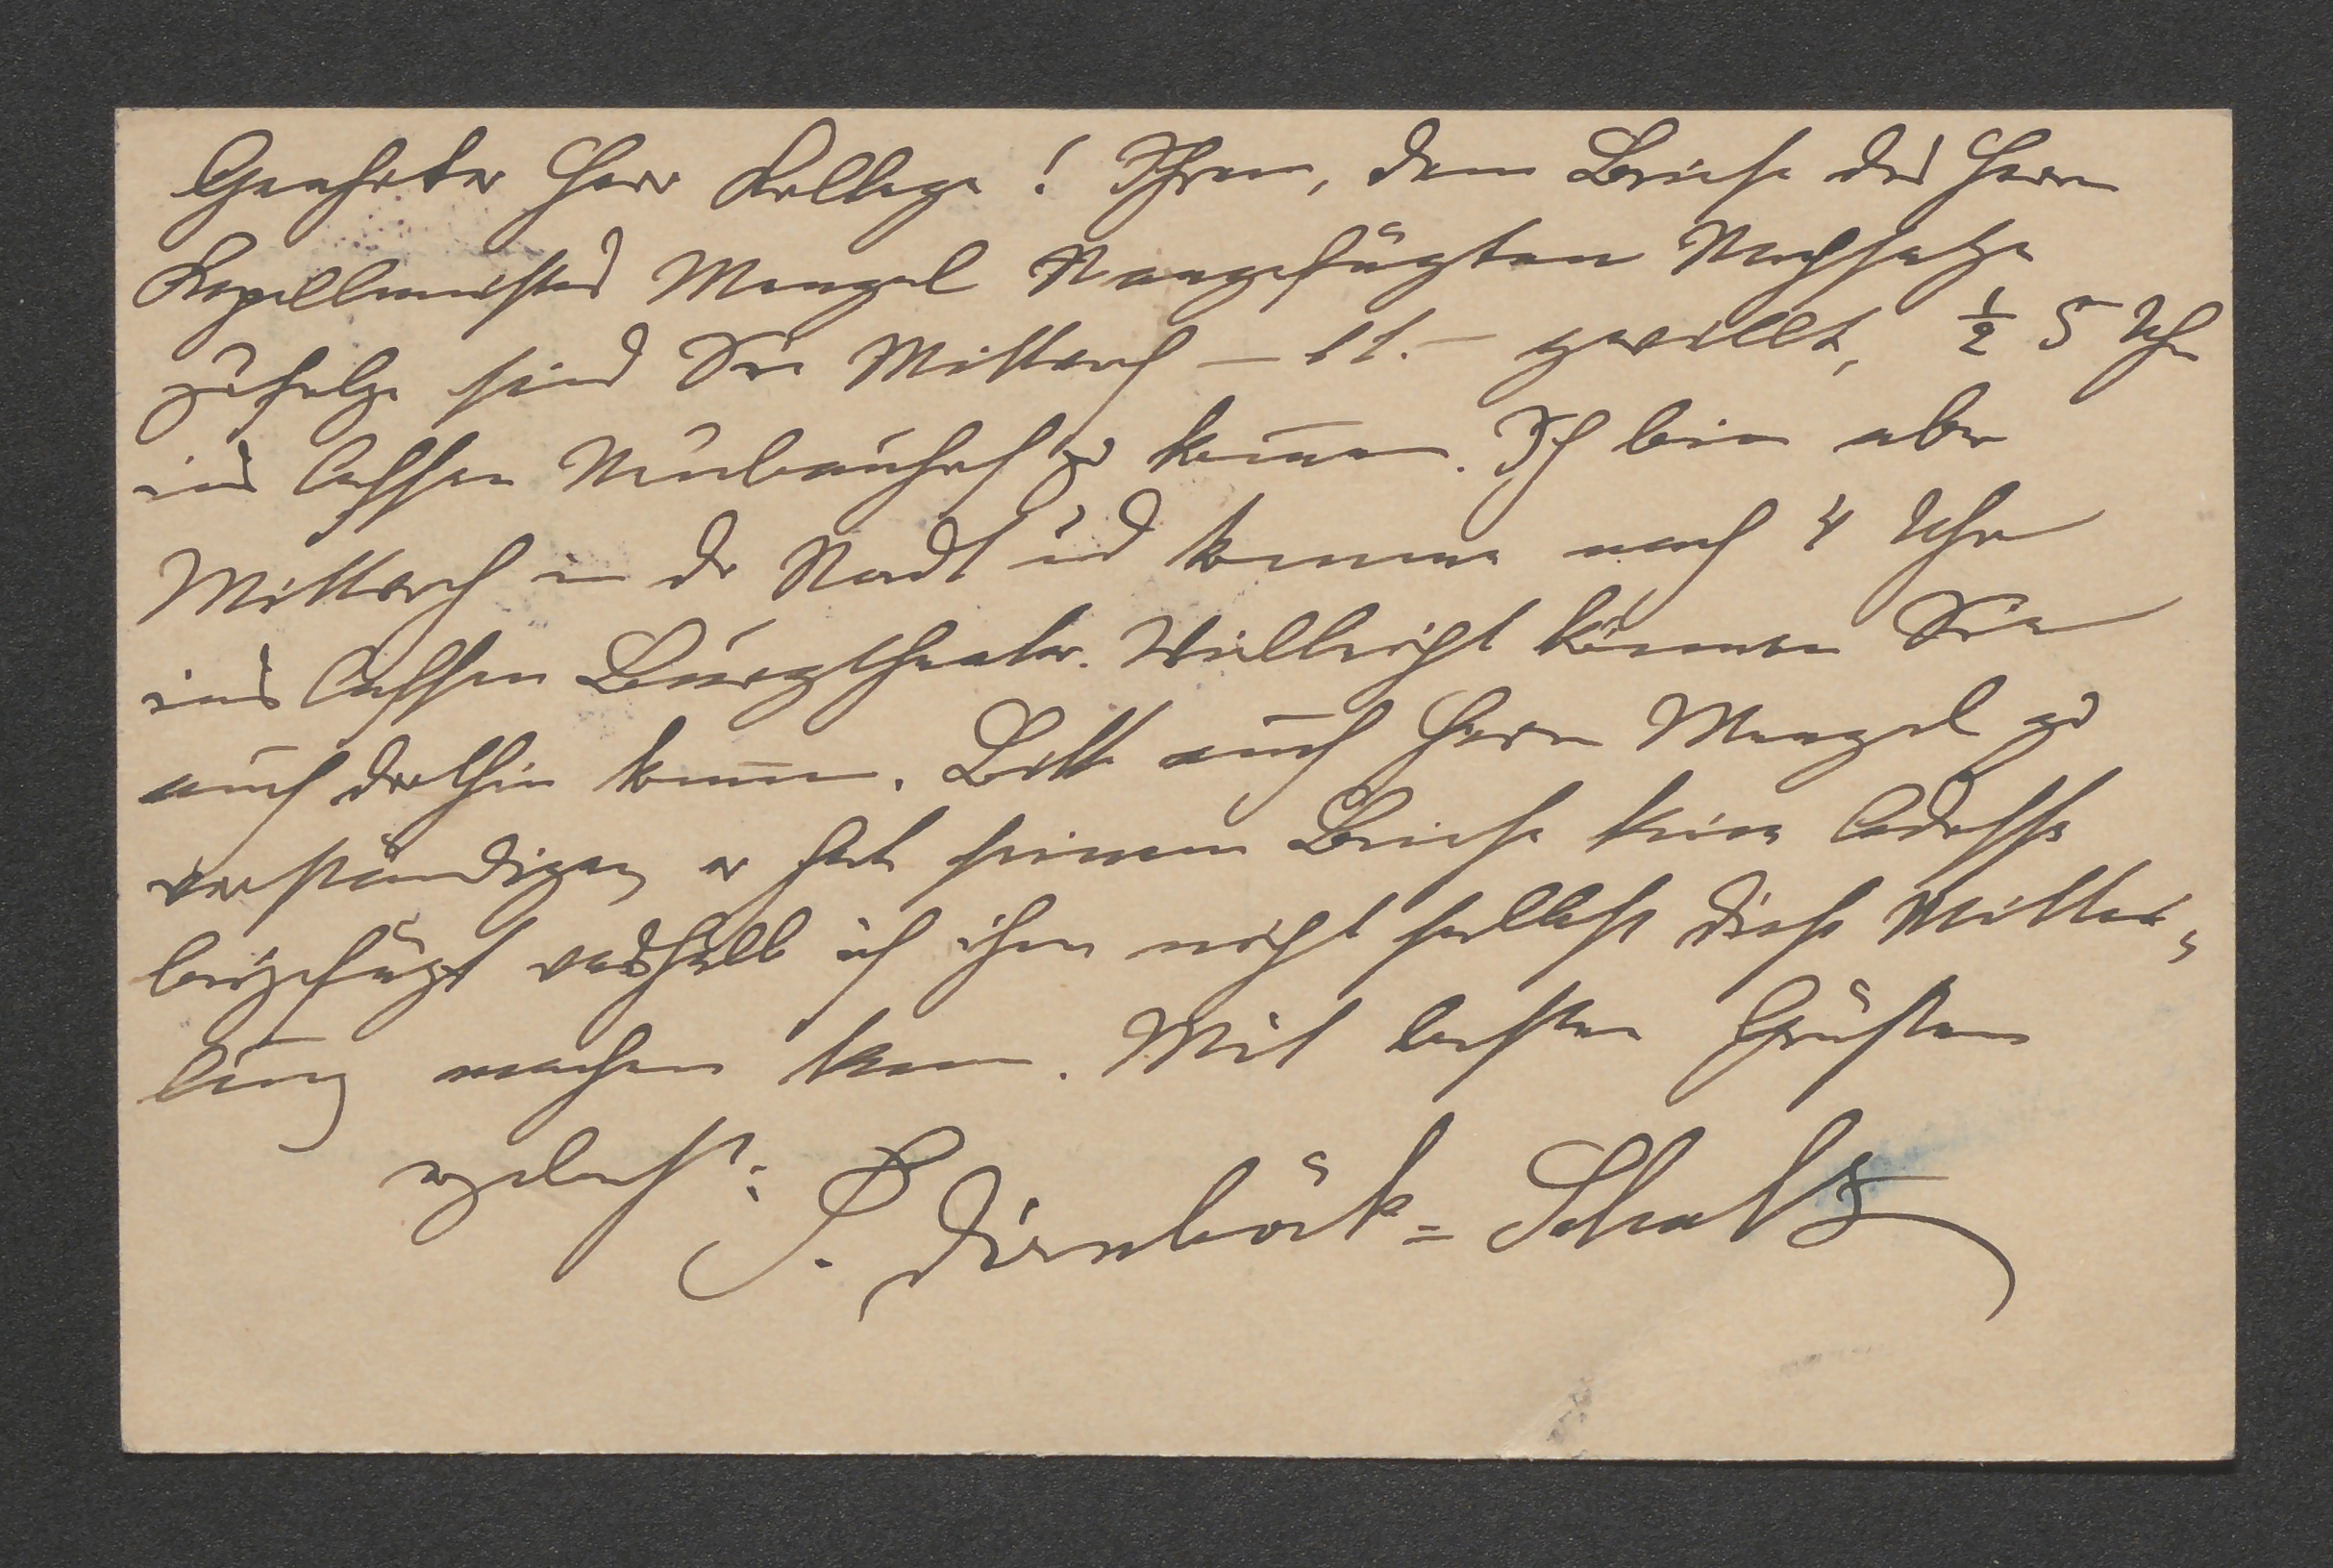 Geehrter Herr Kollege! Ihrem, dem Briefe des Herrn
Kapellmeisters Mengel angefügten Nachsatze
zufolge sind Sie Mittwoch – 11. – gewillt, ½ 5 Uhr
ins Caffee Neubauhof zu kom̅en. Ich bin aber
Mittwoch in der Stadt und komme nach 4 Uhr
ins Caffee Burgtheater. Vielleicht können Sie
auch dorthin kom̅en. Bitte auch Herrn Mengel zu
verständigen, er hat seinem Briefe keine Adresse
beigefügt weshalb ich ihm nicht selbst diese Mittei=
lung machen kann. Mit besten Grüßen
ergebenst: J. Dirnböck=Schulz